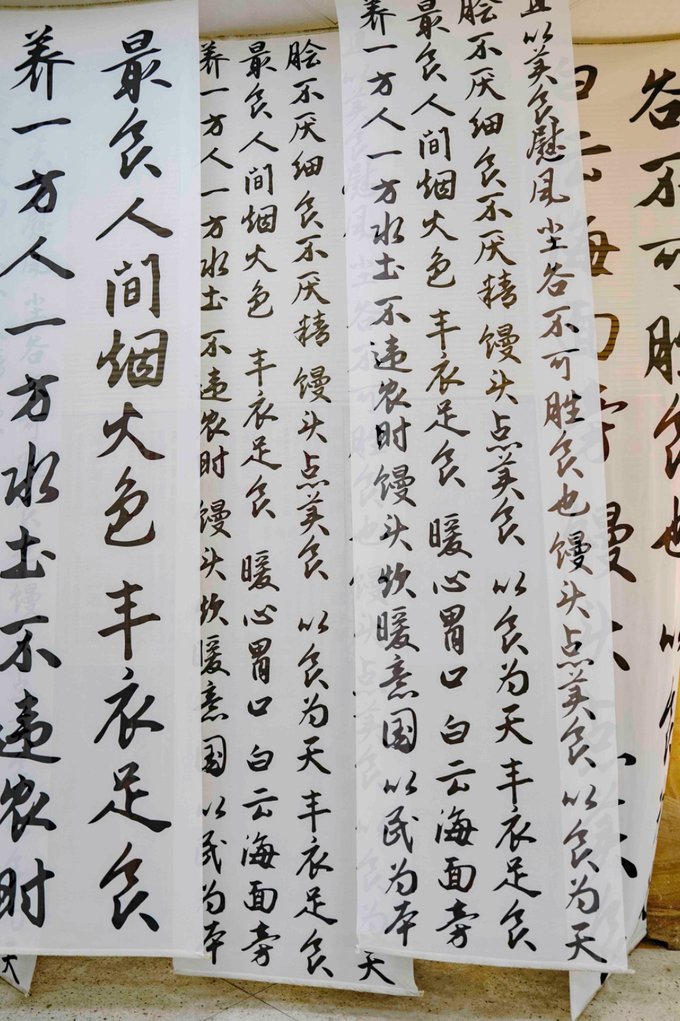 谷不可胜食也 以食
白云海面旁 馒头
且以美食慰风尘谷不可胜食也馒头点美食以食为天
脍不厌细食不厌精馒头点美食 以食为天丰衣足食
最食人间烟火色 丰衣足食 暖心胃口白云海面旁
养一方人一方水土不违农时馒头炊暖意国以民为本
脍不厌细食不厌精馒头点美食 以食为天丰衣足食
最食人间烟火色 丰衣足食 暖心胃口白云海面旁
养一方人一方水土不违农时 馒头炊暖意国以民为本
最食人间烟火色 丰衣足食
养一方人一方水土不违农时